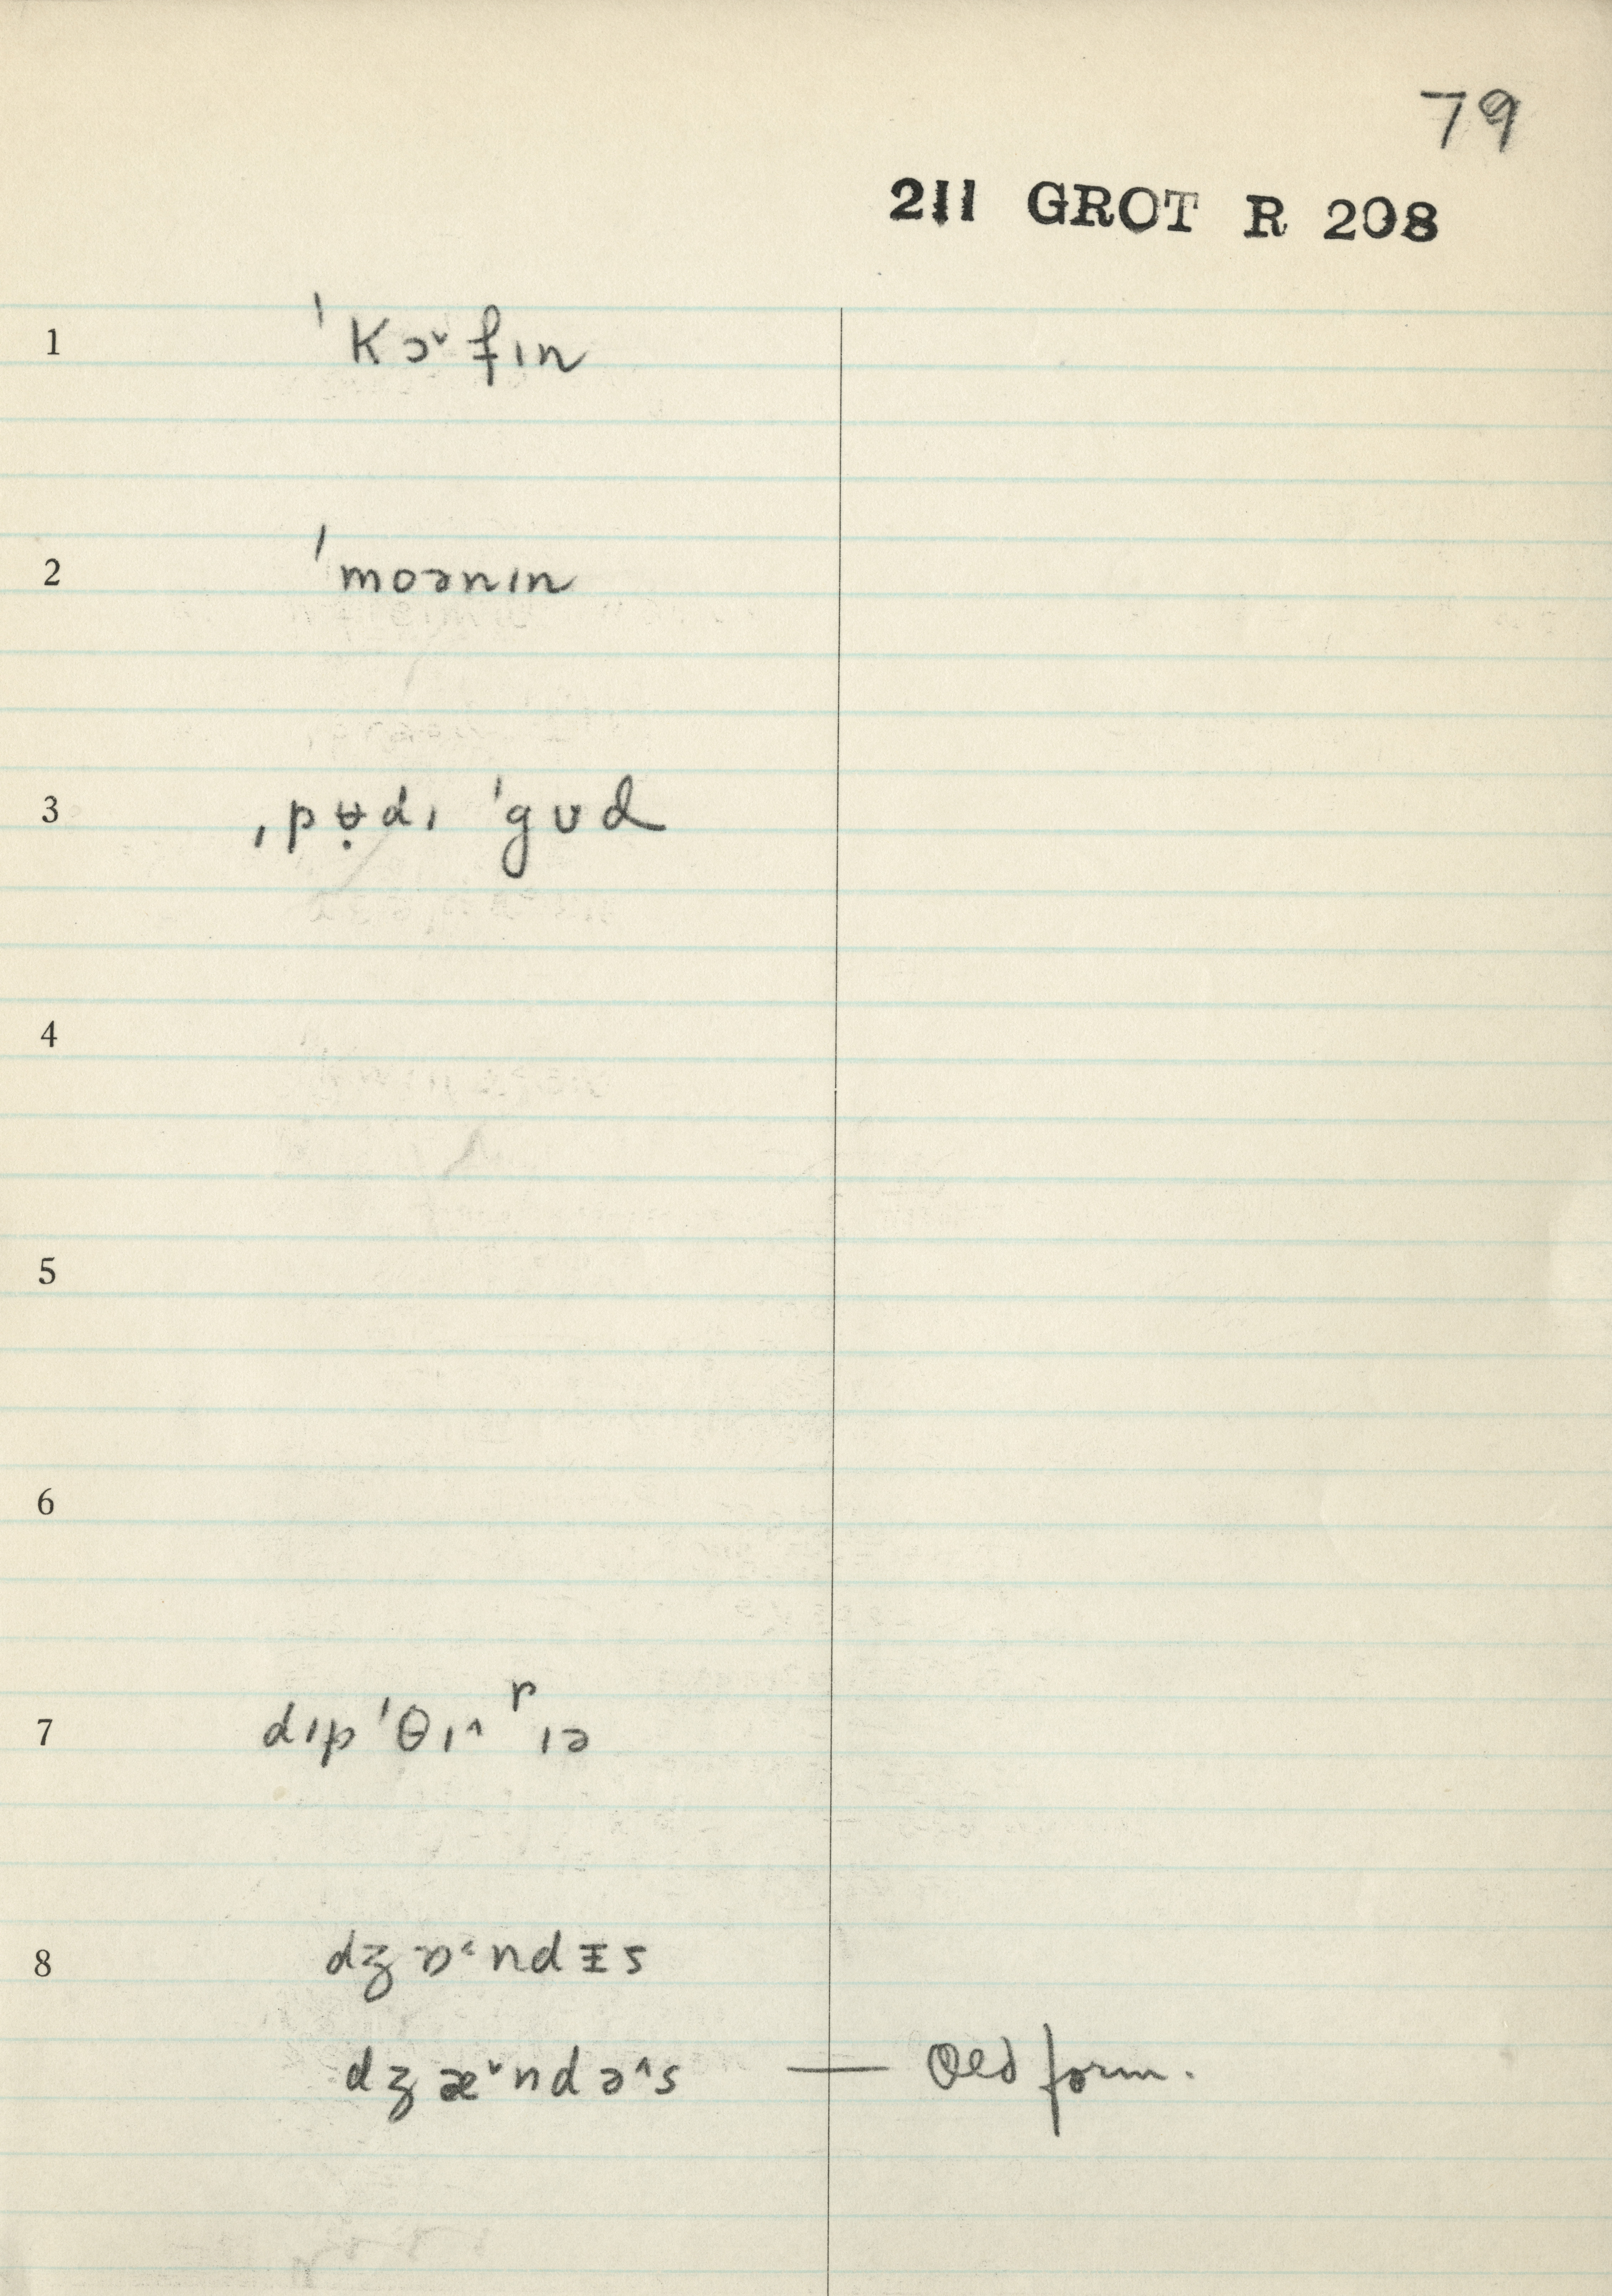 79
211 GROT R 208
1 ˈkɔ˅fɪn
2 ˈmoənɪn
3 ˌpʉ̣dɪ ˈgʊd
4
5
6
7 dɪpˈθɪ˄ʳɪə
8 dʒɒ˂ndɪ̵s
dʒæ˅ndə˄s — Old form.